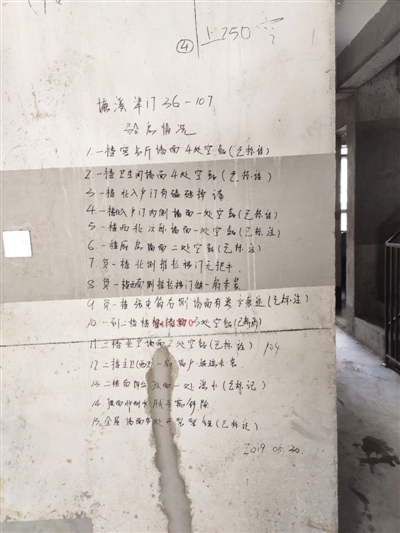 ④ 1:250
梅溪津门 36-107
验房情况
1. 一楼客与厅墙面4处空鼓(已标注)
2. 一楼卫生间墙面4处空鼓(已标注)
3. 一楼北入户门有磕碰掉漆
4. 一楼入户门内侧墙面一处空鼓(已标注)
5. 一楼西北次卧墙面一处空鼓(已标注)
6. 一楼厨房墙面二处空鼓(已标注)
7. 负一楼北侧推拉移门无把手
8. 负一楼西侧推拉移门缺一扇未装
9. 负一楼强电箱右侧墙面有 (已标注)
10. 一到二楼楼梯墙面3处空鼓
11. 二楼 墙面2处空鼓(已标注) 104
12. 二楼主卫(西) 一扇窗户玻璃未装
13. 二楼南阳台顶面一处漏水(已标记)
14.
15. 全屋墙面多处 (已标注)
2019.05.20.